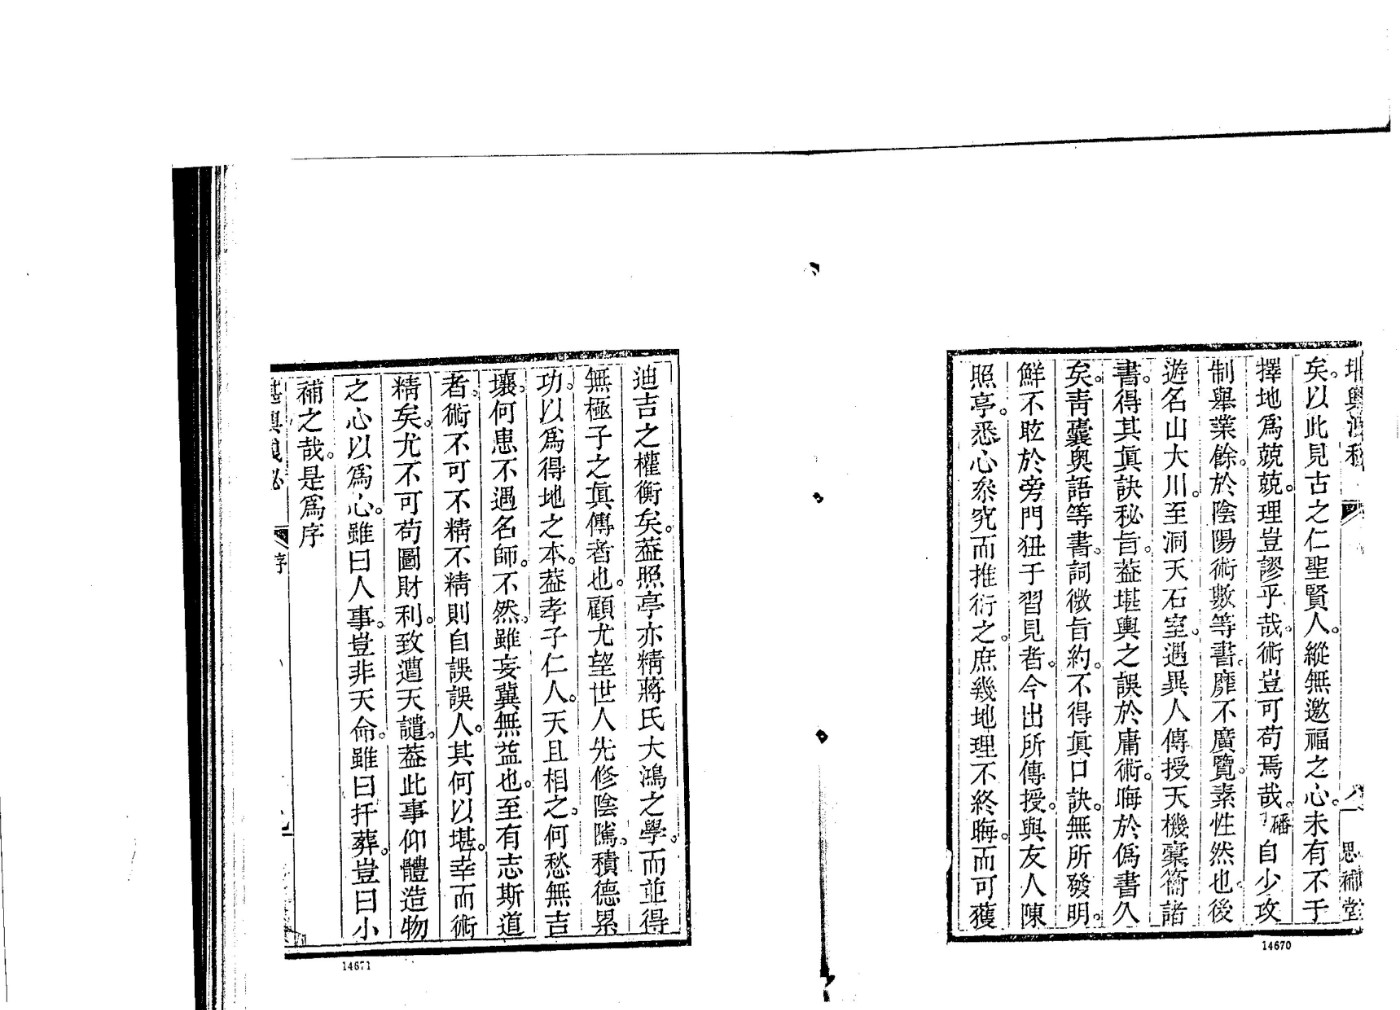 矣。以此見古之仁聖賢人。縱無邀福之心。未有不于
擇地爲兢兢。理豈謬乎哉。術豈可苟焉哉。磻自少攻
制舉業餘。於陰陽術數等書。靡不廣覽。素性然也。後
遊名山大川。至洞天石室。遇異人傳授天機橐籥諸
書。得其眞訣秘旨。葢堪輿之誤於庸術。晦於僞書久
矣。靑囊奥語等書。詞微旨約。不得眞口訣。無所發明。
鮮不眩於旁門狃于習見者。今出所傳授。與友人陳
照亭。悉心叅究而推衍之。庶幾地理不終晦。而可獲
思補堂
14670
迪吉之權衡矣。葢照亭亦精蔣氏大鴻之學。而並得
無極子之眞傳者也。顧尤望世人先修陰隲。積德累
功。以爲得地之本。葢孝子仁人。天且相之。何愁無吉
壤。何患不遇名師。不然。雖妄冀無益也。至有志斯道
者。術不可不精。不精則自誤誤人。其何以堪。幸而術
精矣。尤不可苟圖財利。致遭天譴。葢此事仰體造物
之心以爲心。雖曰人事。豈非天命。雖曰扞葬。豈曰小
補之哉。是爲序
序
14671